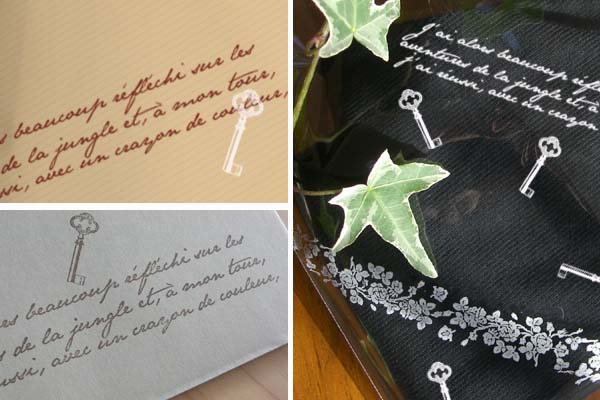 s beaucoup réfléchi sur les
de la jungle et, à mon tour,
ssi, avec un crayon de couleur,
rs beaucoup réfléchi sur les
s de la jungle et, à mon tour,
ussi, avec un crayon de couleur,
J'ai alors beaucoup réfl
aventures de la jungle et, à
j'ai réussi, avec un crayon